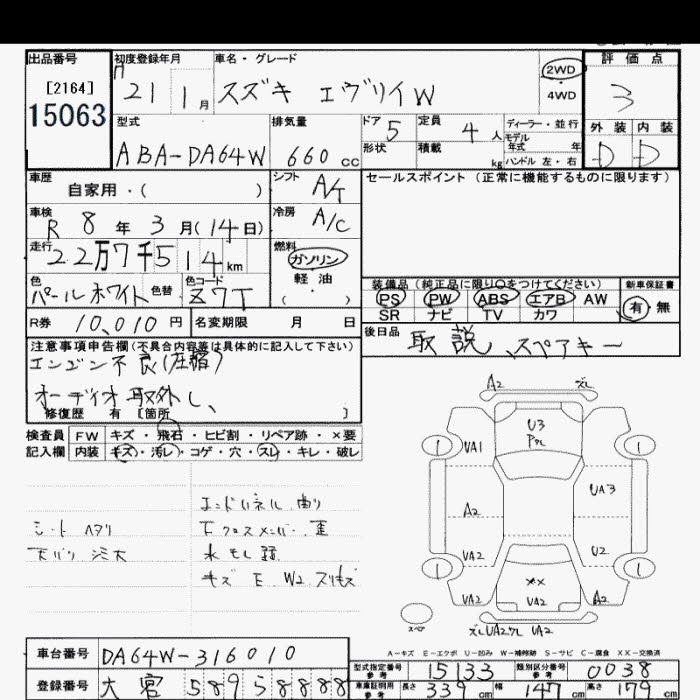 出品番号 初度登録年月 車名・グレード 2WD 評価点
[2164] H 21 1月 スズキ エヴリイW 4WD 3
15063
型式 排気量 ドア 5 定員 4人 ディーラー・並行 外装 内装
ABA-DA64W 660cc 形状 積載 kg モデル年式 年 D D
ハンドル 左・右
車歴 自家用・( ) シフト A/T セールスポイント (正常に機能するものに限ります)
車検 R 8年 3月(14日) 冷房 A/C
走行 22万7千514km 燃料 ガソリン
軽油
( )
色 パールホワイト 色替 色コード Z7T 装備品 (純正品に限り○をつけてください) 新車保証書
PS PW ABS エアB AW 有・無
SR ナビ TV カワ
R券 10,010円 名変期限 月 日 後日品 取説、スペアキー
注意事項申告欄(不具合内容等は具体的に記入して下さい)
エンジン不良(圧縮)
オーディオ取外し、
修復歴 有 [箇所 ]
検査員 FW キズ・飛石・ヒビ割・リペア跡・×要
記入欄 内装 キズ・汚レ・コゲ・穴・スレ・キレ・破レ
エンドパネル 曲り
シートヘタリ 下クロスメンバー 歪
水モレ 跡
キズ E W2 スリキズ
A2 ズレ
U3
1 UA1 1
A2 UA3
UA2 U2
1 ×× 1
UA2 UA2 A2
スペア
UA2
A-キズ E-エクボ U-凹み W-補修跡 S-サビ C-腐食 XX-交換済
車台番号 DA64W-316010 型式指定番号 参考 15133 類別区分番号 参考 0038
登録番号 大宮 589 5 8888 車庫証明用 参考 長さ 339cm 幅 147cm 高さ 179cm